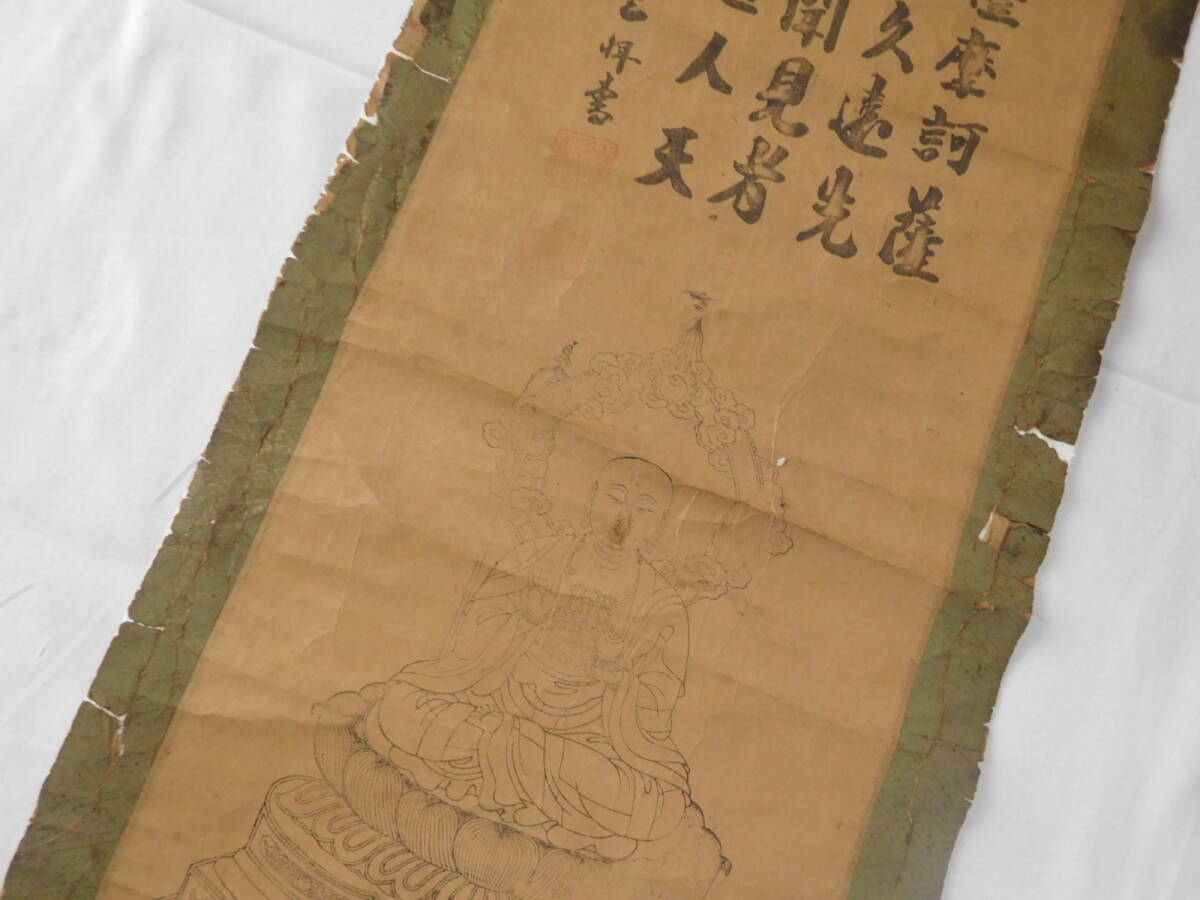 摩訶薩
久遠先
聞見者
人天
書